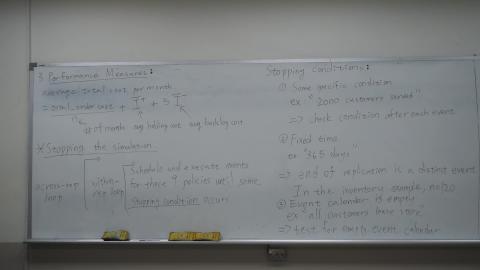 3. Performance Measures:
average total cost per month
= total order cost + I⁺ + 5 I⁻
n
# of month avg holding cost avg backlog cost
* Stopping the simulation
across-rep
loop
within-
rep loop
Schedule and execute events
for these 9 policies until some
Stopping condition occurs
Stopping conditions:
① Some specific condition
ex: "2000 customers served"
=> check condition after each event
② Fixed time
ex "365 days"
=> end of replication is a distinct event
In the inventory example, n=120
③ Event calendar is empty
ex "all customers have
=> test for empty event calendar